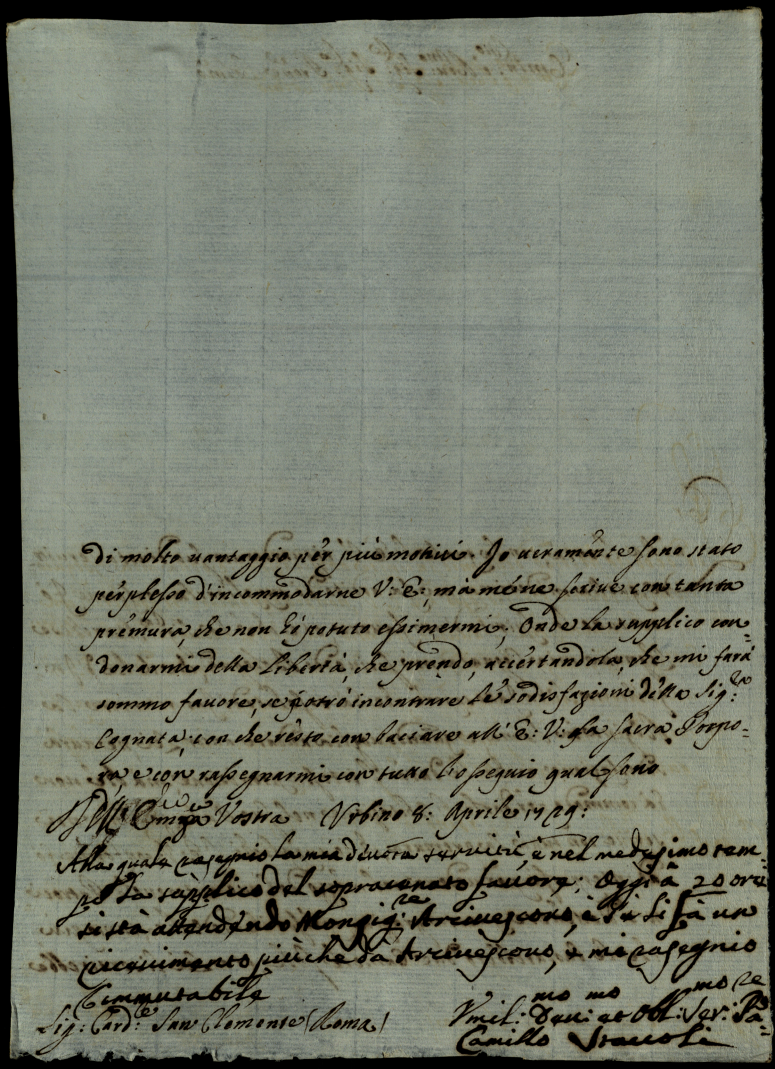 di molto vantaggio per più motivi. Io veramente sono stato
perplesso d'incommodarne V: E:, mà mène scrive con tanta
premura, che non hò potuto essimermi; Onde La supplico con-
donarmi della Libertà, che prendo, accertandola, che mi farà
sommo favore, se potrò incontrare le sodisfazioni della Sig:ra
Cognata; con che resto con bacciare all' E: V: la sacra Porpo-
ra e con rassegnarmi con tutto l'ossequio qual sono
Dell' Emza Vostra Urbino 8: Aprile 1729:
Alla quale rasegnio La mia divota servitù, e nel medesimo tem-
po La supplico del sopracenato favore; Oggi à 20 ore
si stà attendendo Monsig:re Arcivescovo, e se li fà un
ricevimento più che dà Arcivescovo, e mi rasegnio
Immutabile
Sig: Card:e San Clemente (Roma)
Vmil:mo Deu:mo et Obl:mo Ser:re
Camillo Staccoli